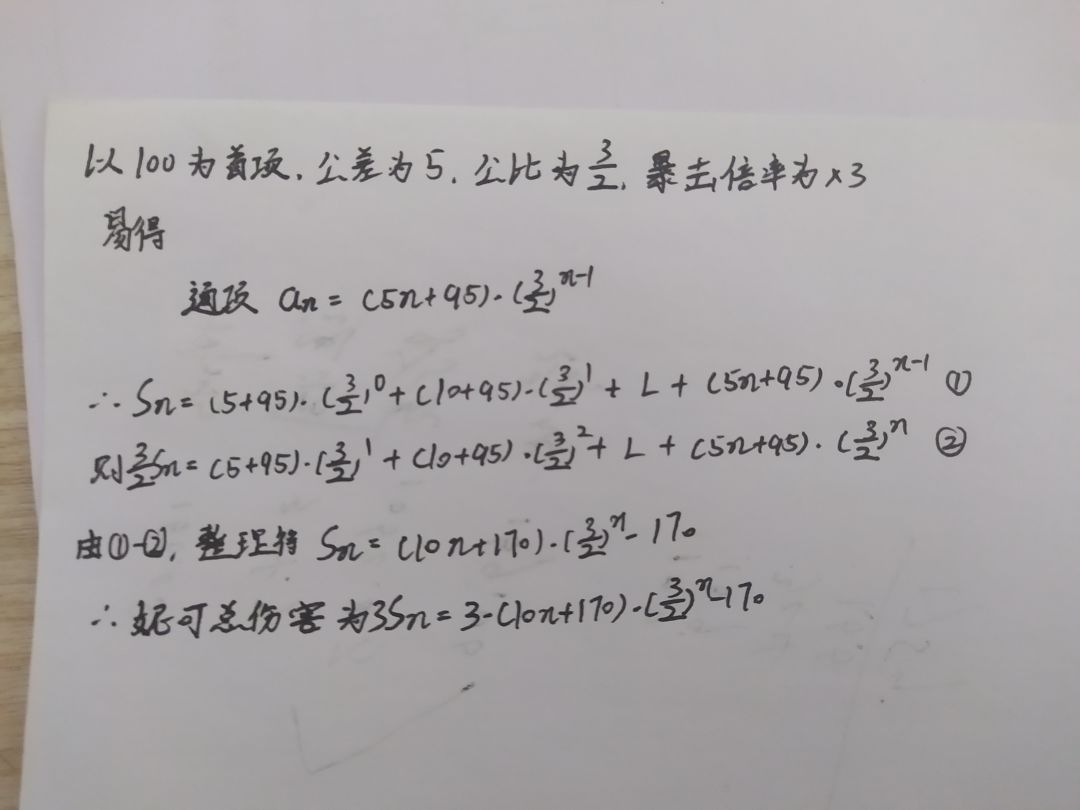 以100为首项,公差为5,公比为3/2,暴击倍率为×3
易得
通项 an = (5n+95)·(3/2)^n-1
∴ Sn = (5+95)·(3/2)^0 + (10+95)·(3/2)^1 + L + (5n+95)·(3/2)^n-1 ①
则 3/2 Sn = (5+95)·(3/2)^1 + (10+95)·(3/2)^2 + L + (5n+95)·(3/2)^n ②
由①-②,整理得 Sn = (10n+170)·(3/2)^n - 170
∴ 妮可总伤害为3Sn = 3·(10n+170)·(3/2)^n - 170